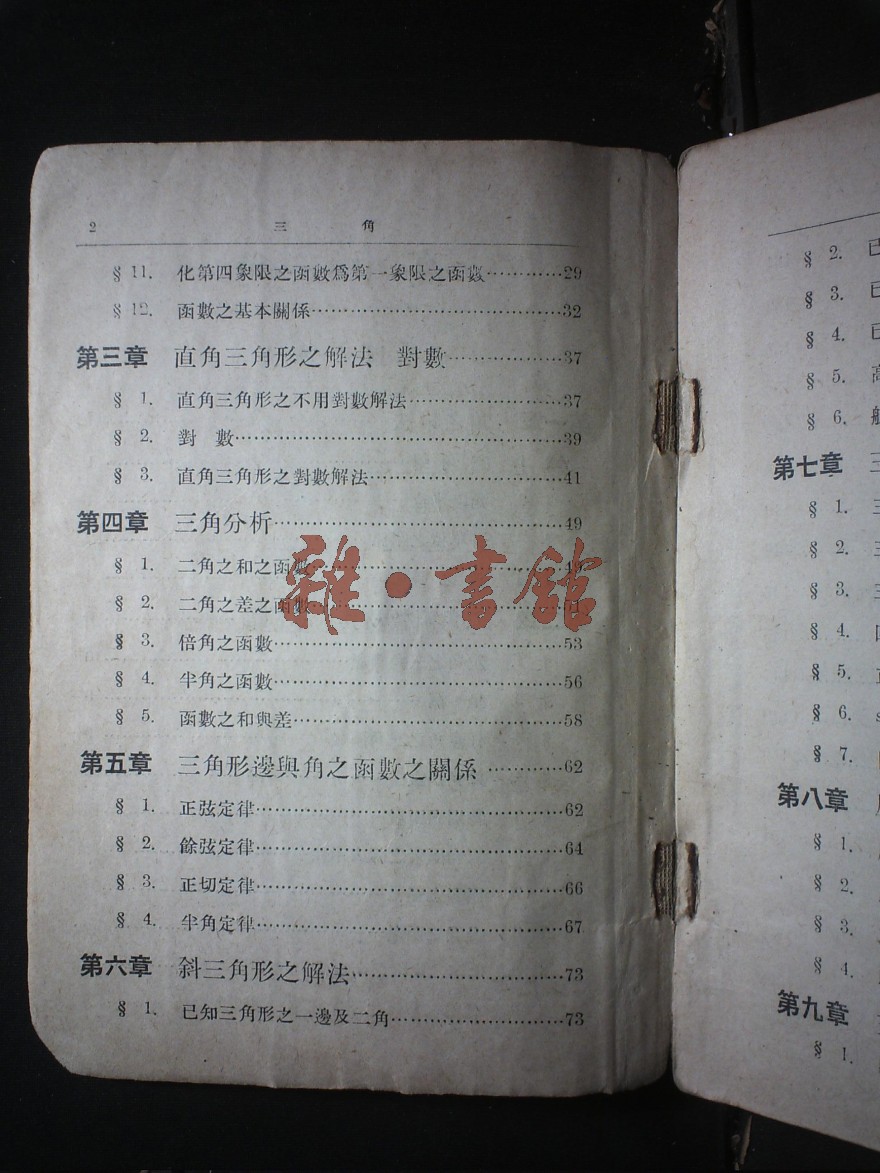 2 三角
§ 11. 化第四象限之函數爲第一象限之函數············29
§ 12. 函數之基本關係············32
第三章 直角三角形之解法 對數············37
§ 1. 直角三角形之不用對數解法············37
§ 2. 對 數············39
§ 3. 直角三角形之對數解法············41
第四章 三角分析············49
§ 1. 二角之和之函數············49
§ 2. 二角之差之函數············51
§ 3. 倍角之函數············53
§ 4. 半角之函數············56
§ 5. 函數之和與差············58
第五章 三角形邊與角之函數之關係············62
§ 1. 正弦定律············62
§ 2. 餘弦定律············64
§ 3. 正切定律············66
§ 4. 半角定律············67
第六章 斜三角形之解法············73
§ 1. 已知三角形之一邊及二角············73
雜·書館
§ 2. 已
§ 3. 已
§ 4. 已
§ 5. 高
§ 6.
第七章 三
§ 1. 三
§ 2. 三
§ 3. 三
§ 4. 四
§ 5.
§ 6. s
§ 7.
第八章
§ 1.
§ 2.
§ 3.
§ 4.
第九章
§ 1.